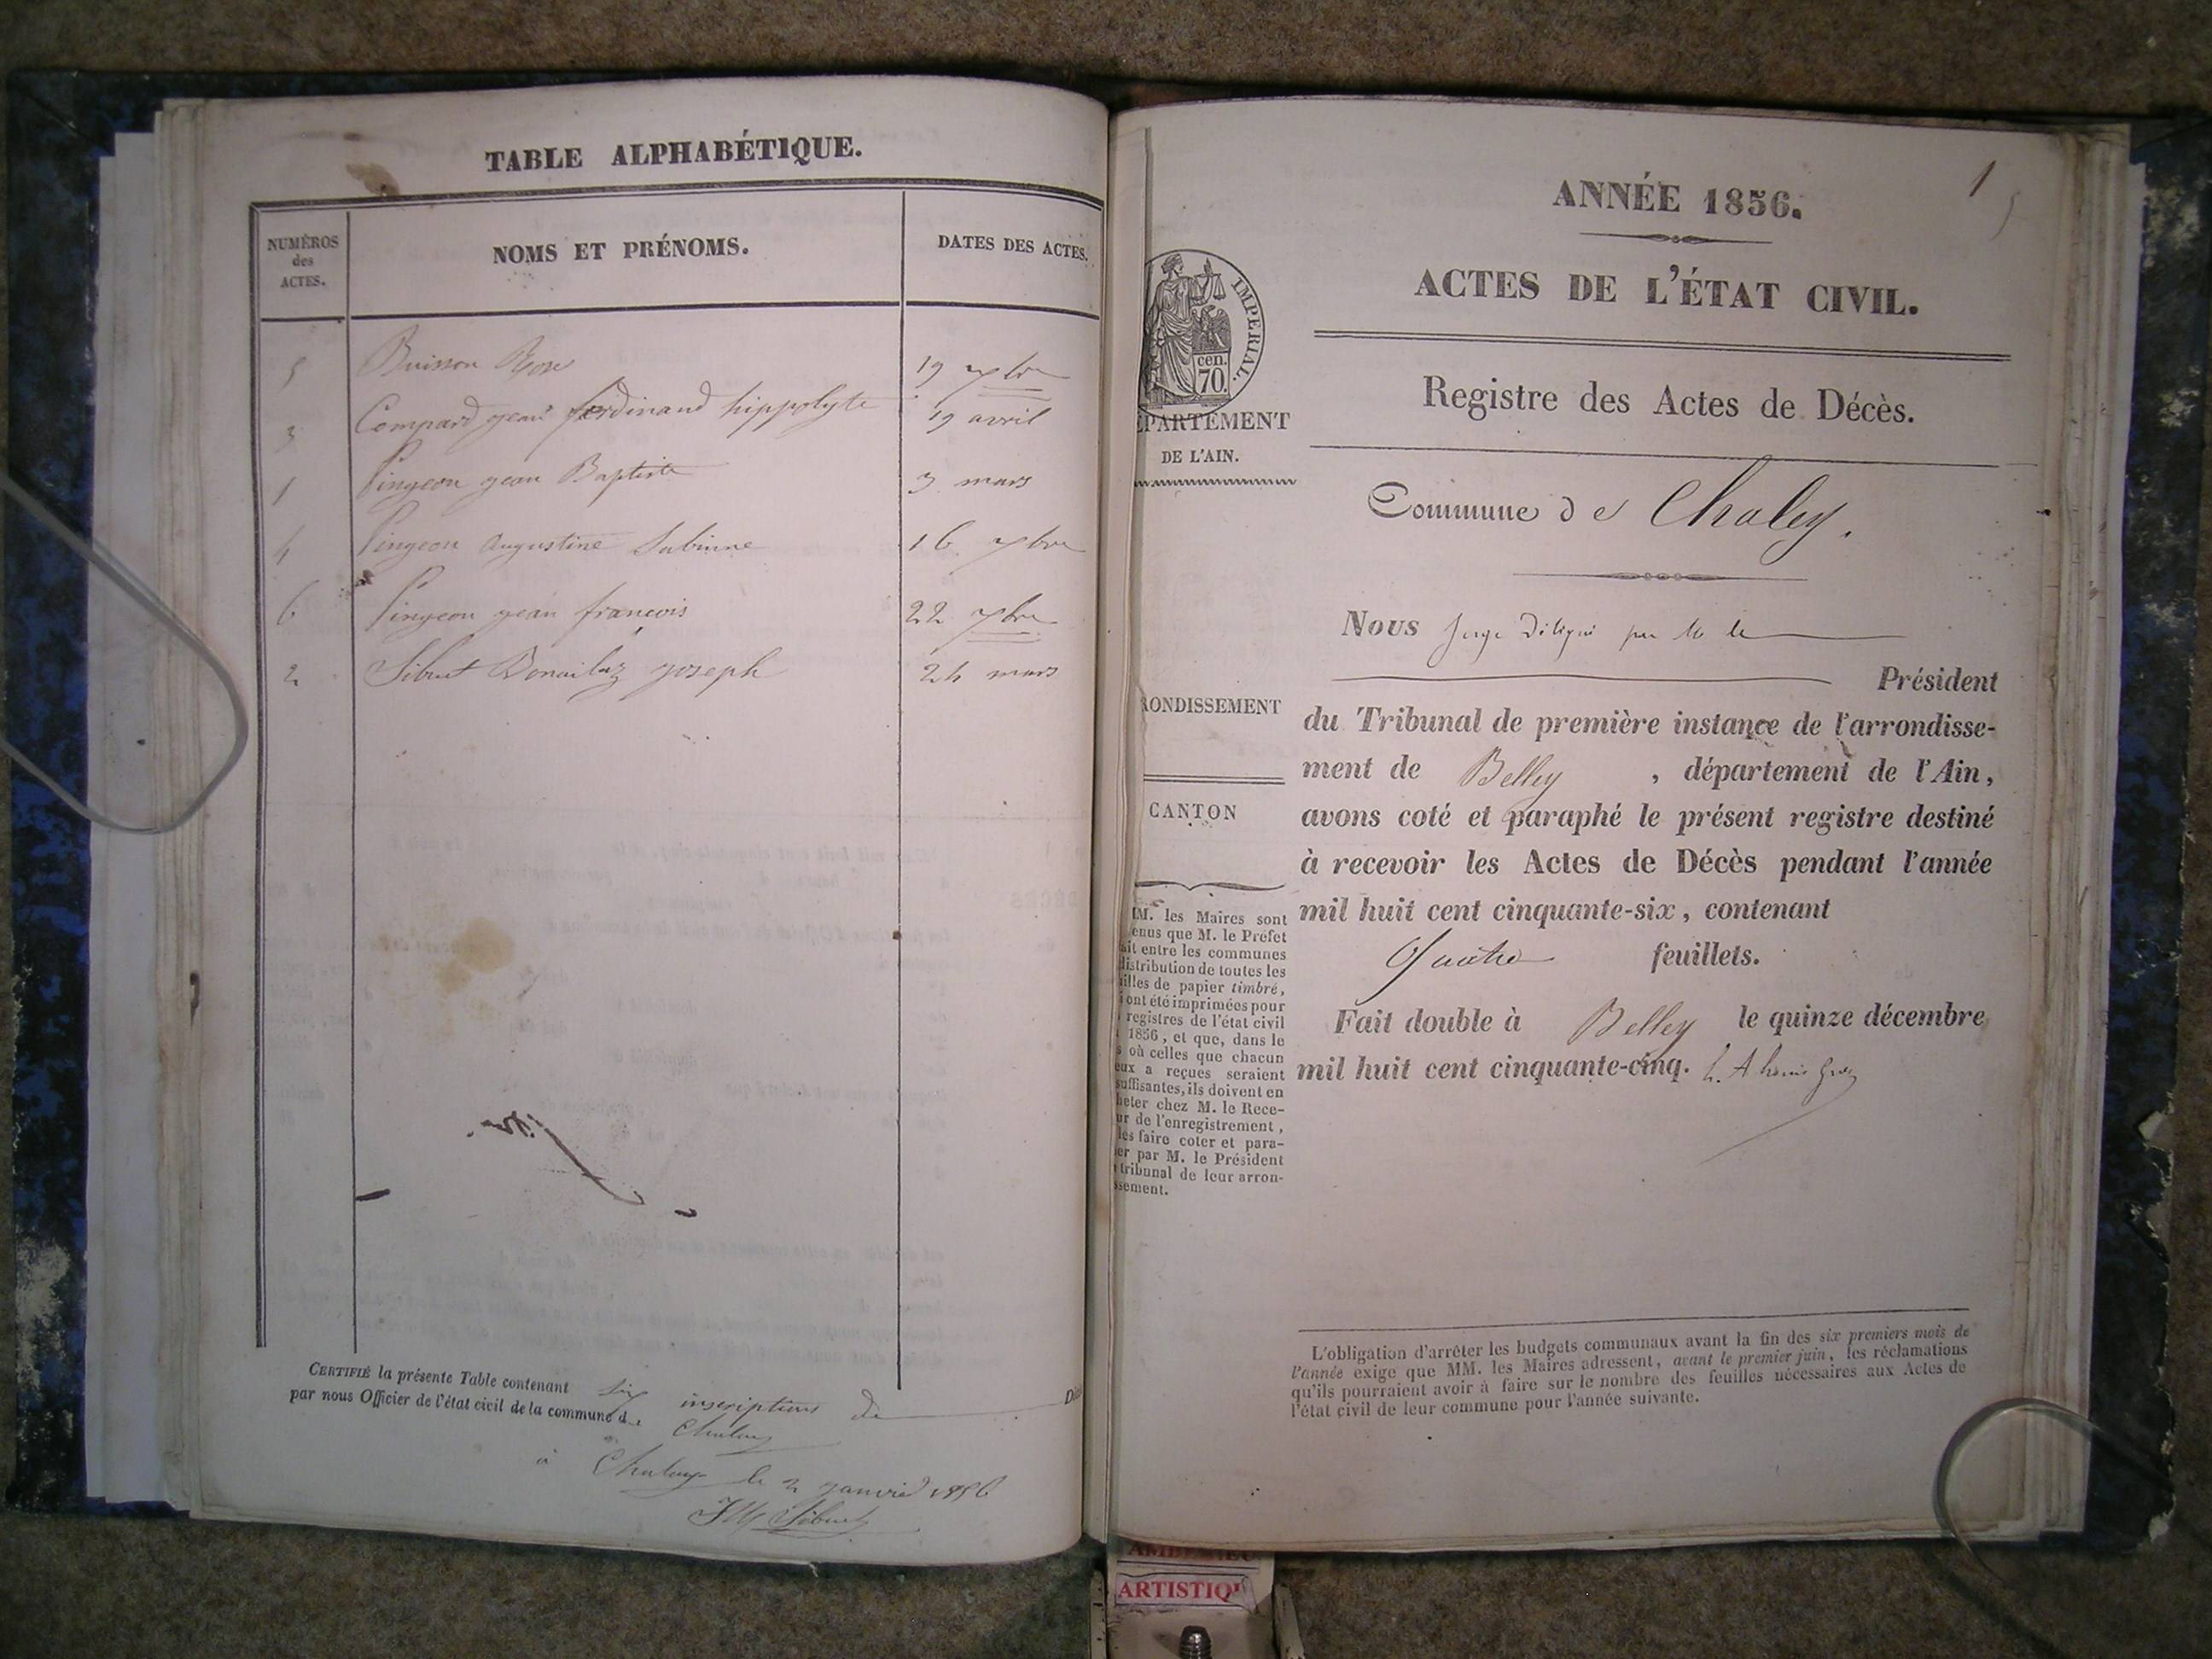 TABLE ALPHABÉTIQUE.
NUMÉROS
des
ACTES.
NOMS ET PRÉNOMS.
DATES DES ACTES.
5 Buisson Rose 19 7bre
3 Compard jean ferdinand hippolyte 19 avril
1 Pingeon jean Baptiste 3 mars
4 Pingeon Augustine Sabinne 16 7bre
6 Pingeon jean francois 22 7bre
2 Sibuet Bonailaz joseph 24 mars
CERTIFIÉ la présente Table contenant six inscriptions de
par nous Officier de l'état civil de la commune de Chaley
à Chaley le 2 janvier 1856
Sibuet
ANNÉE 1856.
1
ACTES DE L'ÉTAT CIVIL.
IMPERIAL.
cen.
70.
Registre des Actes de Décès.
ÉPARTEMENT
DE L'AIN.
Commune de Chaley.
Nous Juge délégué par M le
Président
du Tribunal de première instance de l'arrondisse-
ment de Belley, département de l'Ain,
avons coté et paraphé le présent registre destiné
à recevoir les Actes de Décès pendant l'année
mil huit cent cinquante-six, contenant
Quatre feuillets.
Fait double à Belley le quinze décembre
mil huit cent cinquante-cinq.
RONDISSEMENT
CANTON
MM. les Maires sont
enus que M. le Préfet
ait entre les communes
distribution de toutes les
illes de papier timbré,
i ont été imprimées pour
registres de l'état civil
1856, et que, dans le
s où celles que chacun
eux a reçues seraient
suffisantes, ils doivent en
heter chez M. le Rece-
ur de l'enregistrement,
les faire coter et para-
er par M. le Président
tribunal de leur arron-
ssement.
L'obligation d'arrêter les budgets communaux avant la fin des six premiers mois de
l'année exige que MM. les Maires adressent, avant le premier juin, les réclamations
qu'ils pourraient avoir à faire sur le nombre des feuilles nécessaires aux Actes de
l'état civil de leur commune pour l'année suivante.
ARTISTIQ